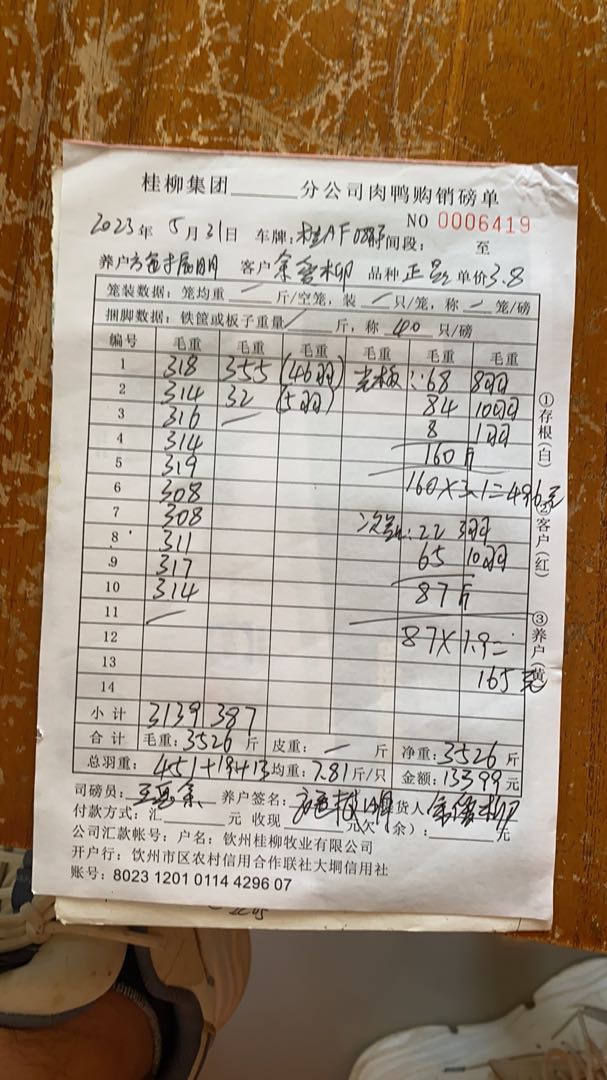 桂柳集团______分公司肉鸭购销磅单
NO 0006419
2023年 5月31日 车牌: 时间段: 至
养户 客户 余 柳 品种 正品 单价3.8
笼装数据: 笼均重 / 斤/空笼, 装 / 只/笼, 称 / 笼/磅
捆脚数据: 铁筐或板子重量 / 斤, 称 40 只/磅
编号 毛重 毛重 毛重 毛重 毛重 毛重
1 318 355 (46羽) 光板: 68 8羽
2 314 32 (5羽) 84 10羽
3 316 / 8 1羽
4 314 160斤
5 319
6 308 160×3.1=496元
7 308 次品: 22 3羽
8 311 65 10羽
9 317 87斤
10 314
11 /
12 87×1.9=
13 165元
14
小计 3139 387
合计 毛重: 3526 斤 皮重: / 斤 净重: 3526 斤
总羽重: 451+19+13 均重: 7.81 斤/只 金额: 13399 元
司磅员: 养户签名: 货人 余 柳
付款方式: 汇______元 收现______元欠(余): ______元
公司汇款帐号: 户名: 钦州桂柳牧业有限公司
开户行: 钦州市区农村信用合作联社大垌信用社
账号: 8023 1201 0114 4296 07
①存根(白)
②客户(红)
③养户(黄)